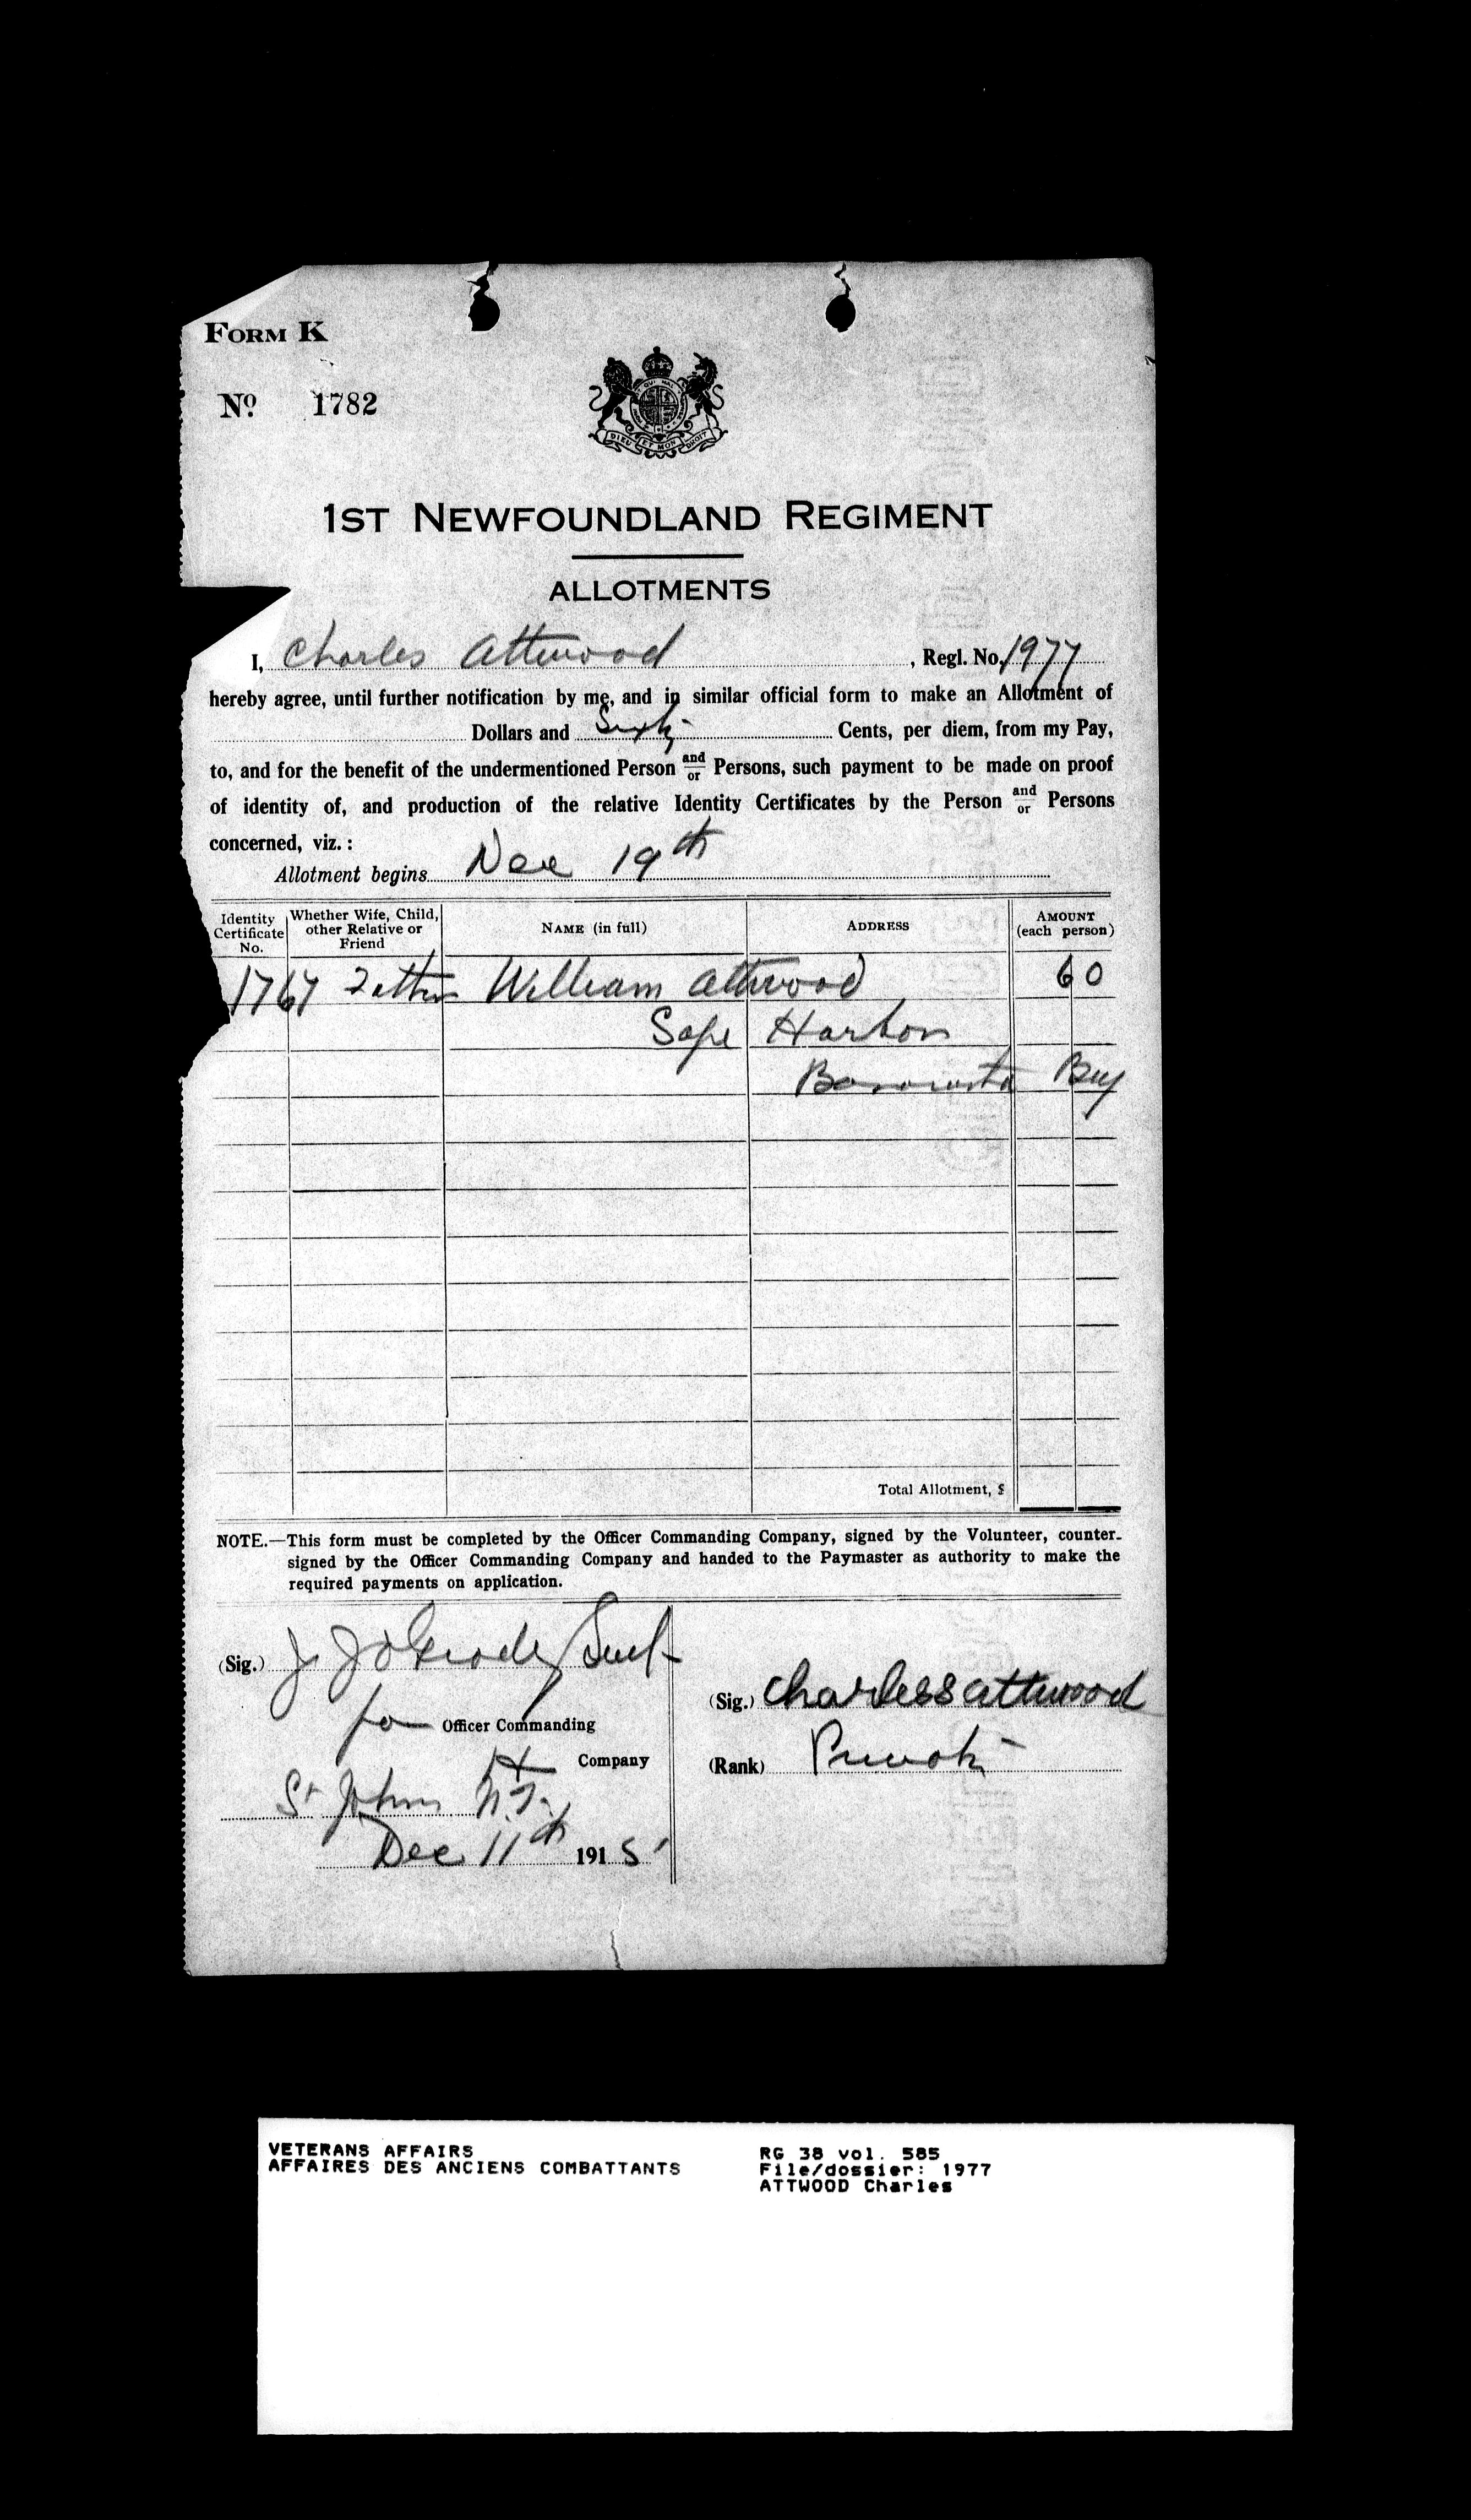 FORM K
No. 1782
DIEU ET MON DROIT
1ST NEWFOUNDLAND REGIMENT
ALLOTMENTS
I, Charles Attwood, Regl. No. 1977
hereby agree, until further notification by me, and in similar official form to make an Allotment of
Dollars and Sixty Cents, per diem, from my Pay,
to, and for the benefit of the undermentioned Person and/or Persons, such payment to be made on proof
of identity of, and production of the relative Identity Certificates by the Person and/or Persons
concerned, viz. :
Allotment begins Dec 19th
Identity Certificate No. Whether Wife, Child, other Relative or Friend NAME (in full) ADDRESS AMOUNT (each person)
1767 Father William Attwood 60
Safe Harbor
Bonavista Bay
Total Allotment, $
NOTE.—This form must be completed by the Officer Commanding Company, signed by the Volunteer, counter-
signed by the Officer Commanding Company and handed to the Paymaster as authority to make the
required payments on application.
(Sig.) J J O'Grady
for Officer Commanding
H Company
St Johns N.F.
Dec 11th 1915
(Sig.) Charless Attwood
(Rank) Private
VETERANS AFFAIRS
AFFAIRES DES ANCIENS COMBATTANTS
RG 38 vol. 585
File/dossier: 1977
ATTWOOD Charles